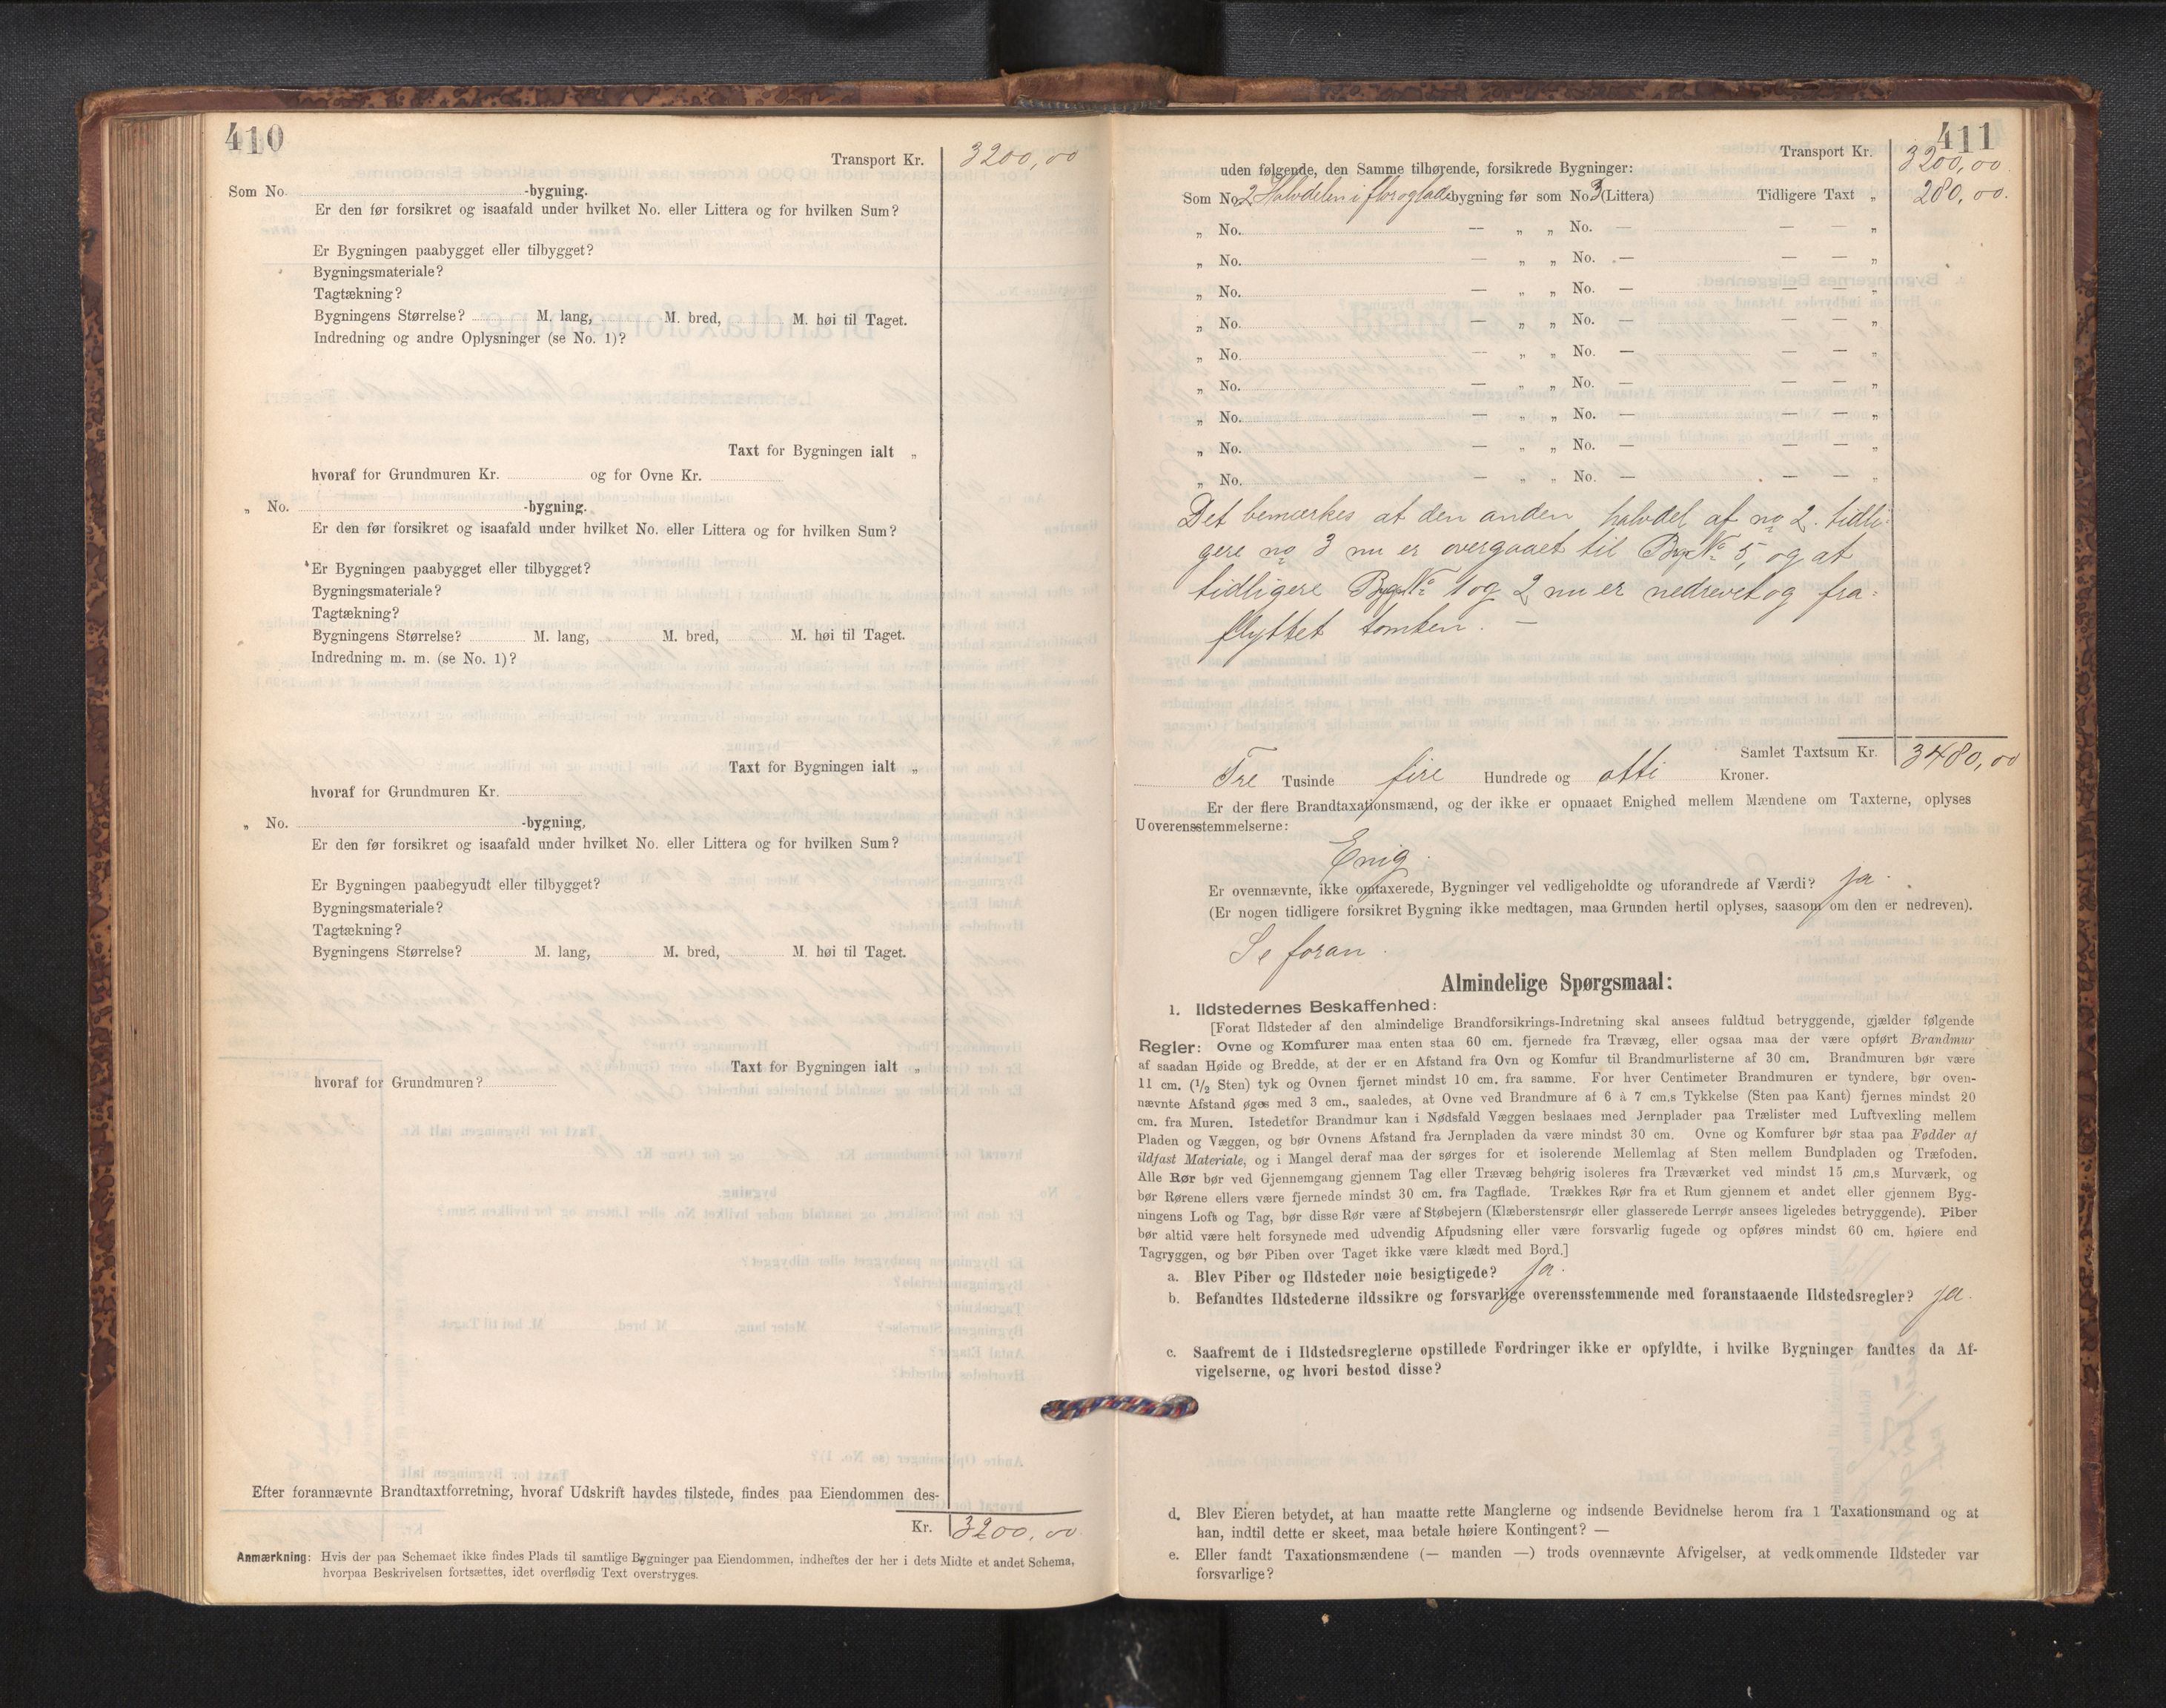 410
Transport Kr. 3200,00
Som No. -bygning.
Er den før forsikret og isaafald under hvilket No. eller Littera og for hvilken Sum?
Er Bygningen paabygget eller tilbygget?
Bygningsmateriale?
Tagtækning?
Bygningens Størrelse? M. lang, M. bred, M. høi til Taget.
Indredning og andre Oplysninger (se No. 1)?
Taxt for Bygningen ialt „
hvoraf for Grundmuren Kr. og for Ovne Kr.
„ No. -bygning.
Er den før forsikret og isaafald under hvilket No. eller Littera og for hvilken Sum?
Er Bygningen paabygget eller tilbygget?
Bygningsmateriale?
Tagtækning?
Bygningens Størrelse? M. lang, M. bred, M. høi til Taget.
Indredning m. m. (se No. 1)?
Taxt for Bygningen ialt „
hvoraf for Grundmuren Kr.
„ No. -bygning,
Er den før forsikret og isaafald under hvilket No. eller Littera og for hvilken Sum?
Er Bygningen paabegyudt eller tilbygget?
Bygningsmateriale?
Tagtækning?
Bygningens Størrelse? M. lang, M. bred, M. høi til Taget.
Taxt for Bygningen ialt „
hvoraf for Grundmuren?
Efter forannævnte Brandtaxtforretning, hvoraf Udskrift havdes tilstede, findes paa Eiendommen des-
Kr. 3200,00
Anmærkning: Hvis der paa Schemaet ikke findes Plads til samtlige Bygninger paa Eiendommen, indheftes der her i dets Midte et andet Schema,
hvorpaa Beskrivelsen fortsættes, idet overflødig Text overstryges.
411
Transport Kr. 3200,00.
uden følgende, den Samme tilhørende, forsikrede Bygninger:
Som No. 2 Halvdelen i flor og lade bygning før som No. 3 (Littera) Tidligere Taxt „ 280,00.
„ No. — „ „ No. — — — „
„ No. — „ „ No. — — — „
„ No. — „ „ No. — — — „
„ No. — „ „ No. — — — „
„ No. — „ „ No. — — — „
„ No. — „ „ No. — — — „
„ No. — „ „ No. — — — „
„ No. — „ „ No. — — — „
„ No. — „ „ No. — — — „
Det bemærkes at den anden halvdel af no 2. tidli-
gere no 3 nu er overgaaet til Bg. No 5, og at
tidligere Bg. No 1 og 2 nu er nedrevet og fra-
flyttet tomten. —
Samlet Taxtsum Kr. 3480,00
Tre Tusinde fire Hundrede og otti Kroner.
Er der flere Brandtaxationsmænd, og der ikke er opnaaet Enighed mellem Mændene om Taxterne, oplyses
Uoverensstemmelserne:
Enig.
Er ovennævnte, ikke omtaxerede, Bygninger vel vedligeholdte og uforandrede af Værdi? ja.
(Er nogen tidligere forsikret Bygning ikke medtagen, maa Grunden hertil oplyses, saasom om den er nedreven).
Se foran.
Almindelige Spørgsmaal:
1. Ildstedernes Beskaffenhed:
[Forat Ildsteder af den almindelige Brandforsikrings-Indretning skal ansees fuldtud betryggende, gjælder følgende
Regler: Ovne og Komfurer maa enten staa 60 cm. fjernede fra Trævæg, eller ogsaa maa der være opført Brandmur
af saadan Høide og Bredde, at der er en Afstand fra Ovn og Komfur til Brandmurlisterne af 30 cm. Brandmuren bør være
11 cm. (1/2 Sten) tyk og Ovnen fjernet mindst 10 cm. fra samme. For hver Centimeter Brandmuren er tyndere, bør oven-
nævnte Afstand øges med 3 cm., saaledes, at Ovne ved Brandmure af 6 à 7 cm.s Tykkelse (Sten paa Kant) fjernes mindst 20
cm. fra Muren. Istedetfor Brandmur kan i Nødsfald Væggen beslaaes med Jernplader paa Trælister med Luftvexling mellem
Pladen og Væggen, og bør Ovnens Afstand fra Jernpladen da være mindst 30 cm. Ovne og Komfurer bør staa paa Fødder af
ildfast Materiale, og i Mangel deraf maa der sørges for et isolerende Mellemlag af Sten mellem Bundpladen og Træfoden.
Alle Rør bør ved Gjennemgang gjennem Tag eller Trævæg behørig isoleres fra Træværket ved mindst 15 cm.s Murværk, og
bør Rørene ellers være fjernede mindst 30 cm. fra Tagflade. Trækkes Rør fra et Rum gjennem et andet eller gjennem Byg-
ningens Loft og Tag, bør disse Rør være af Støbejern (Klæberstensrør eller glasserede Lerrør ansees ligeledes betryggende). Piber
bør altid være helt forsynede med udvendig Afpudsning eller være forsvarlig fugede og opføres mindst 60 cm. høiere end
Tagryggen, og bør Piben over Taget ikke være klædt med Bord.]
a. Blev Piber og Ildsteder nøie besigtigede? ja.
b. Befandtes Ildstederne ildssikre og forsvarlige overensstemmende med foranstaaende Ildstedsregler? ja.
c. Saafremt de i Ildstedsreglerne opstillede Fordringer ikke er opfyldte, i hvilke Bygninger fandtes da Af-
vigelserne, og hvori bestod disse?
d. Blev Eieren betydet, at han maatte rette Manglerne og indsende Bevidnelse herom fra 1 Taxationsmand og at
han, indtil dette er skeet, maa betale høiere Kontingent? —
e. Eller fandt Taxationsmændene (— manden —) trods ovennævnte Afvigelser, at vedkommende Ildsteder var
forsvarlige?